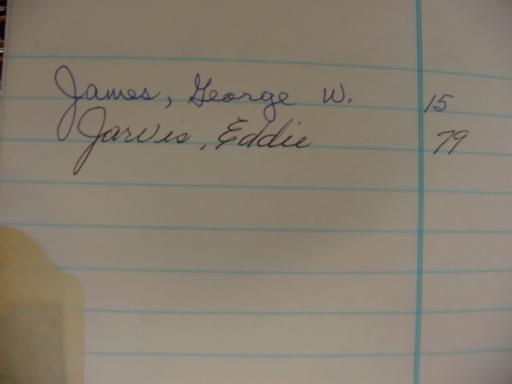 James, George W. 15
Jarvis, Eddie 79